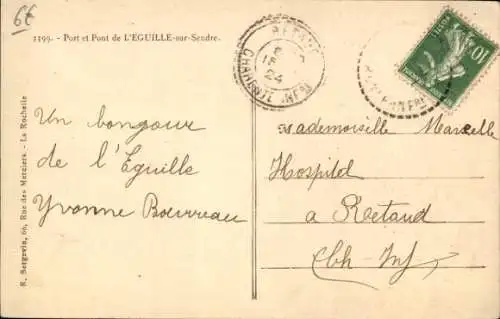 6€
3199. - Port et Pont de L'EGUILLE-sur-Seudre.
RETAUD
24
CHARENTE INFRE
10
Un bonjour
de l'Eguille
Yvonne Bourreau
Mademoiselle Marcelle
Hospital
a Retaud
Ch-Inf
R. Bergevin, 66, Rue des Merciers - La Rochelle